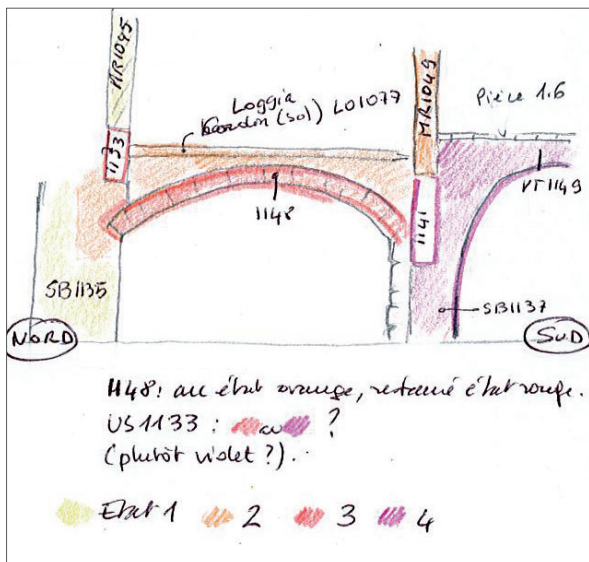 MR1045
1133
Loggia
(sol) LO1077
MR1049
Pièce 1.6
1148
1141
VT1149
SB1135
SB1137
NORD
SUD
1148: au état orange, restauré état rouge.
US1133 : ou ?
(plutôt violet ?).
Etat 1 2 3 4